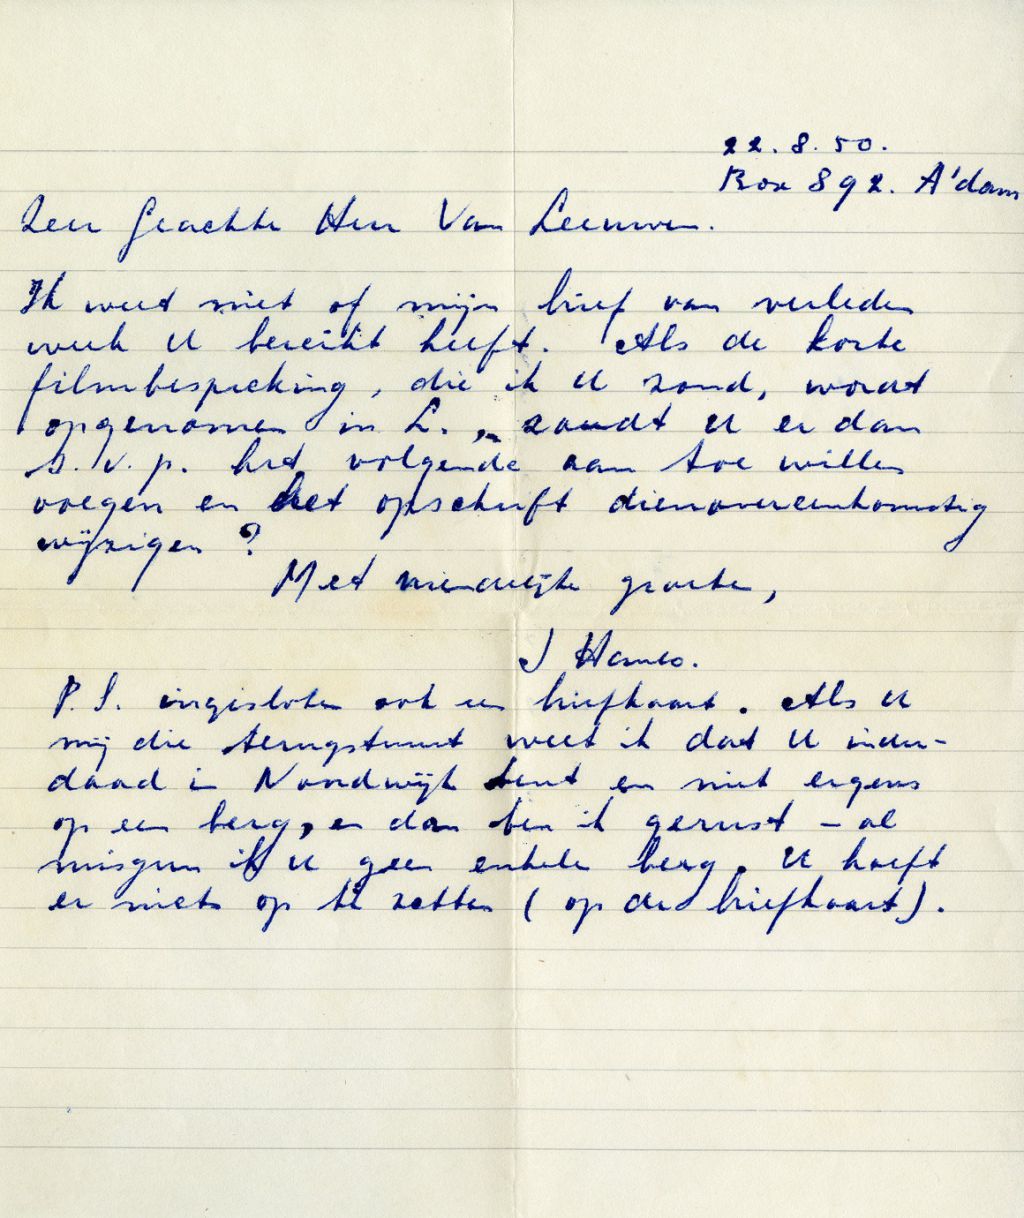 22.8.50.
Box 892. A'dam
Zeer Geachte Heer Van Leeuwen.
Ik weet niet of mijn brief van verleden
week U bereikt heeft. Als de korte
filmbespreking, die ik U zond, wordt
opgenomen in L., zoudt U er dan
s.v.p. het volgende aan toe willen
voegen en het opschrift dienovereenkomstig
wijzigen?
Met vriendelijke groeten,
J Hanlo.
P.S. ingesloten ook een briefkaart. Als U
mij die terugstuurt weet ik dat U inder-
daad in Noordwijk bent en niet ergens
op een berg, en dan ben ik gerust – al
misgun ik U geen enkele berg. U hoeft
er niets op te zetten (op de briefkaart).